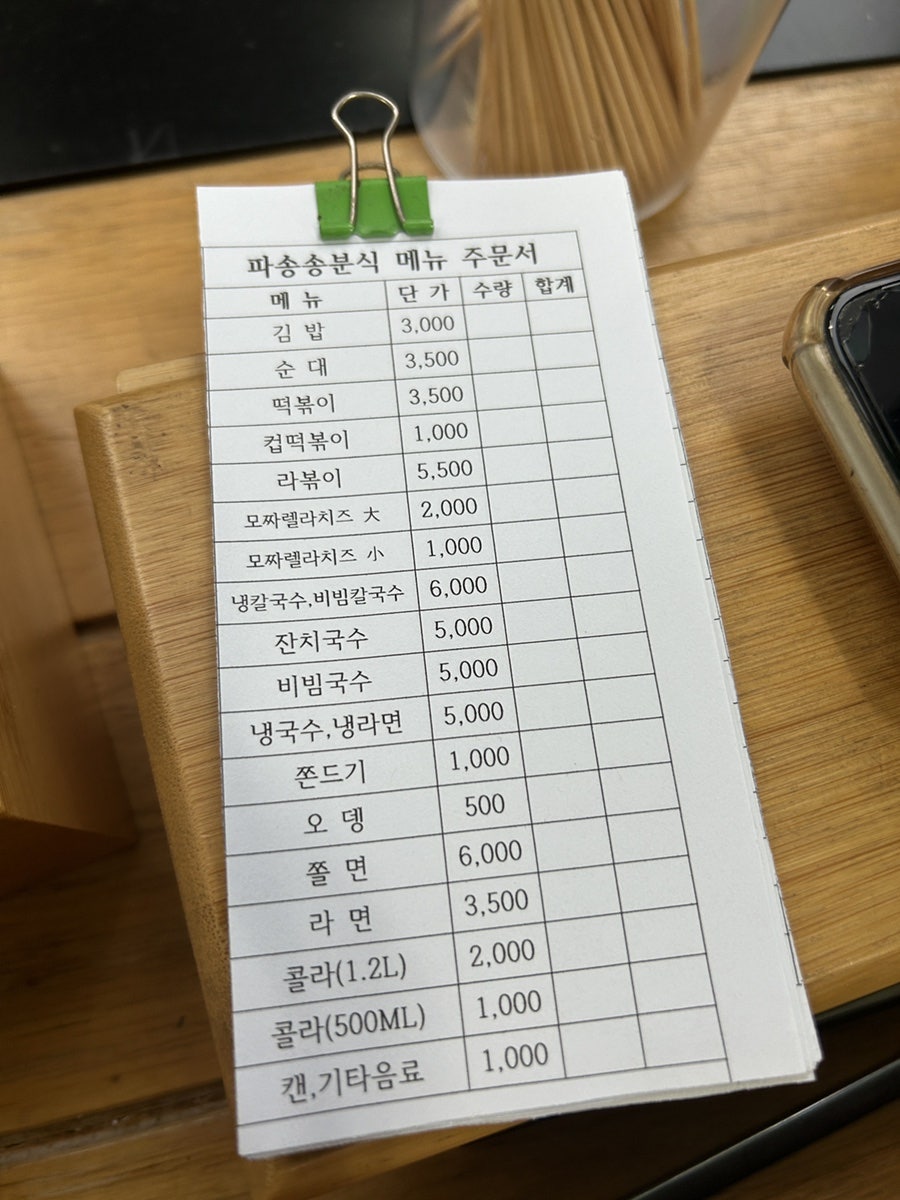 파송송분식 메뉴 주문서
메 뉴 단 가 수량 합계
김 밥 3,000
순 대 3,500
떡볶이 3,500
컵떡볶이 1,000
라볶이 5,500
모짜렐라치즈 大 2,000
모짜렐라치즈 小 1,000
냉칼국수,비빔칼국수 6,000
잔치국수 5,000
비빔국수 5,000
냉국수,냉라면 5,000
쫀드기 1,000
오 뎅 500
쫄 면 6,000
라 면 3,500
콜라(1.2L) 2,000
콜라(500ML) 1,000
캔,기타음료 1,000